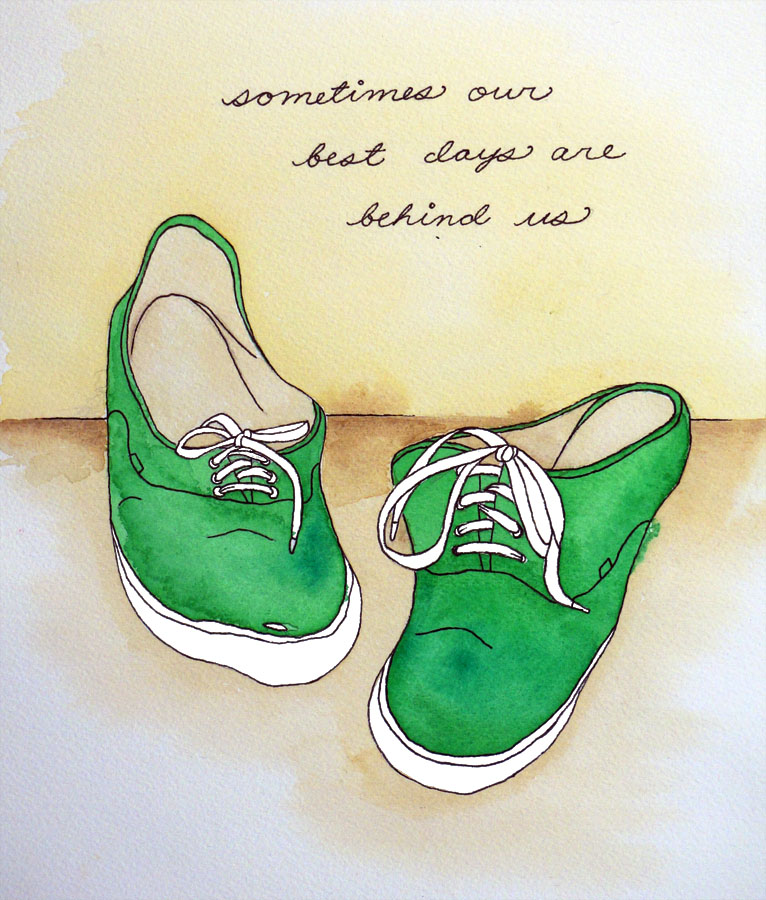 sometimes our
best days are
behind us